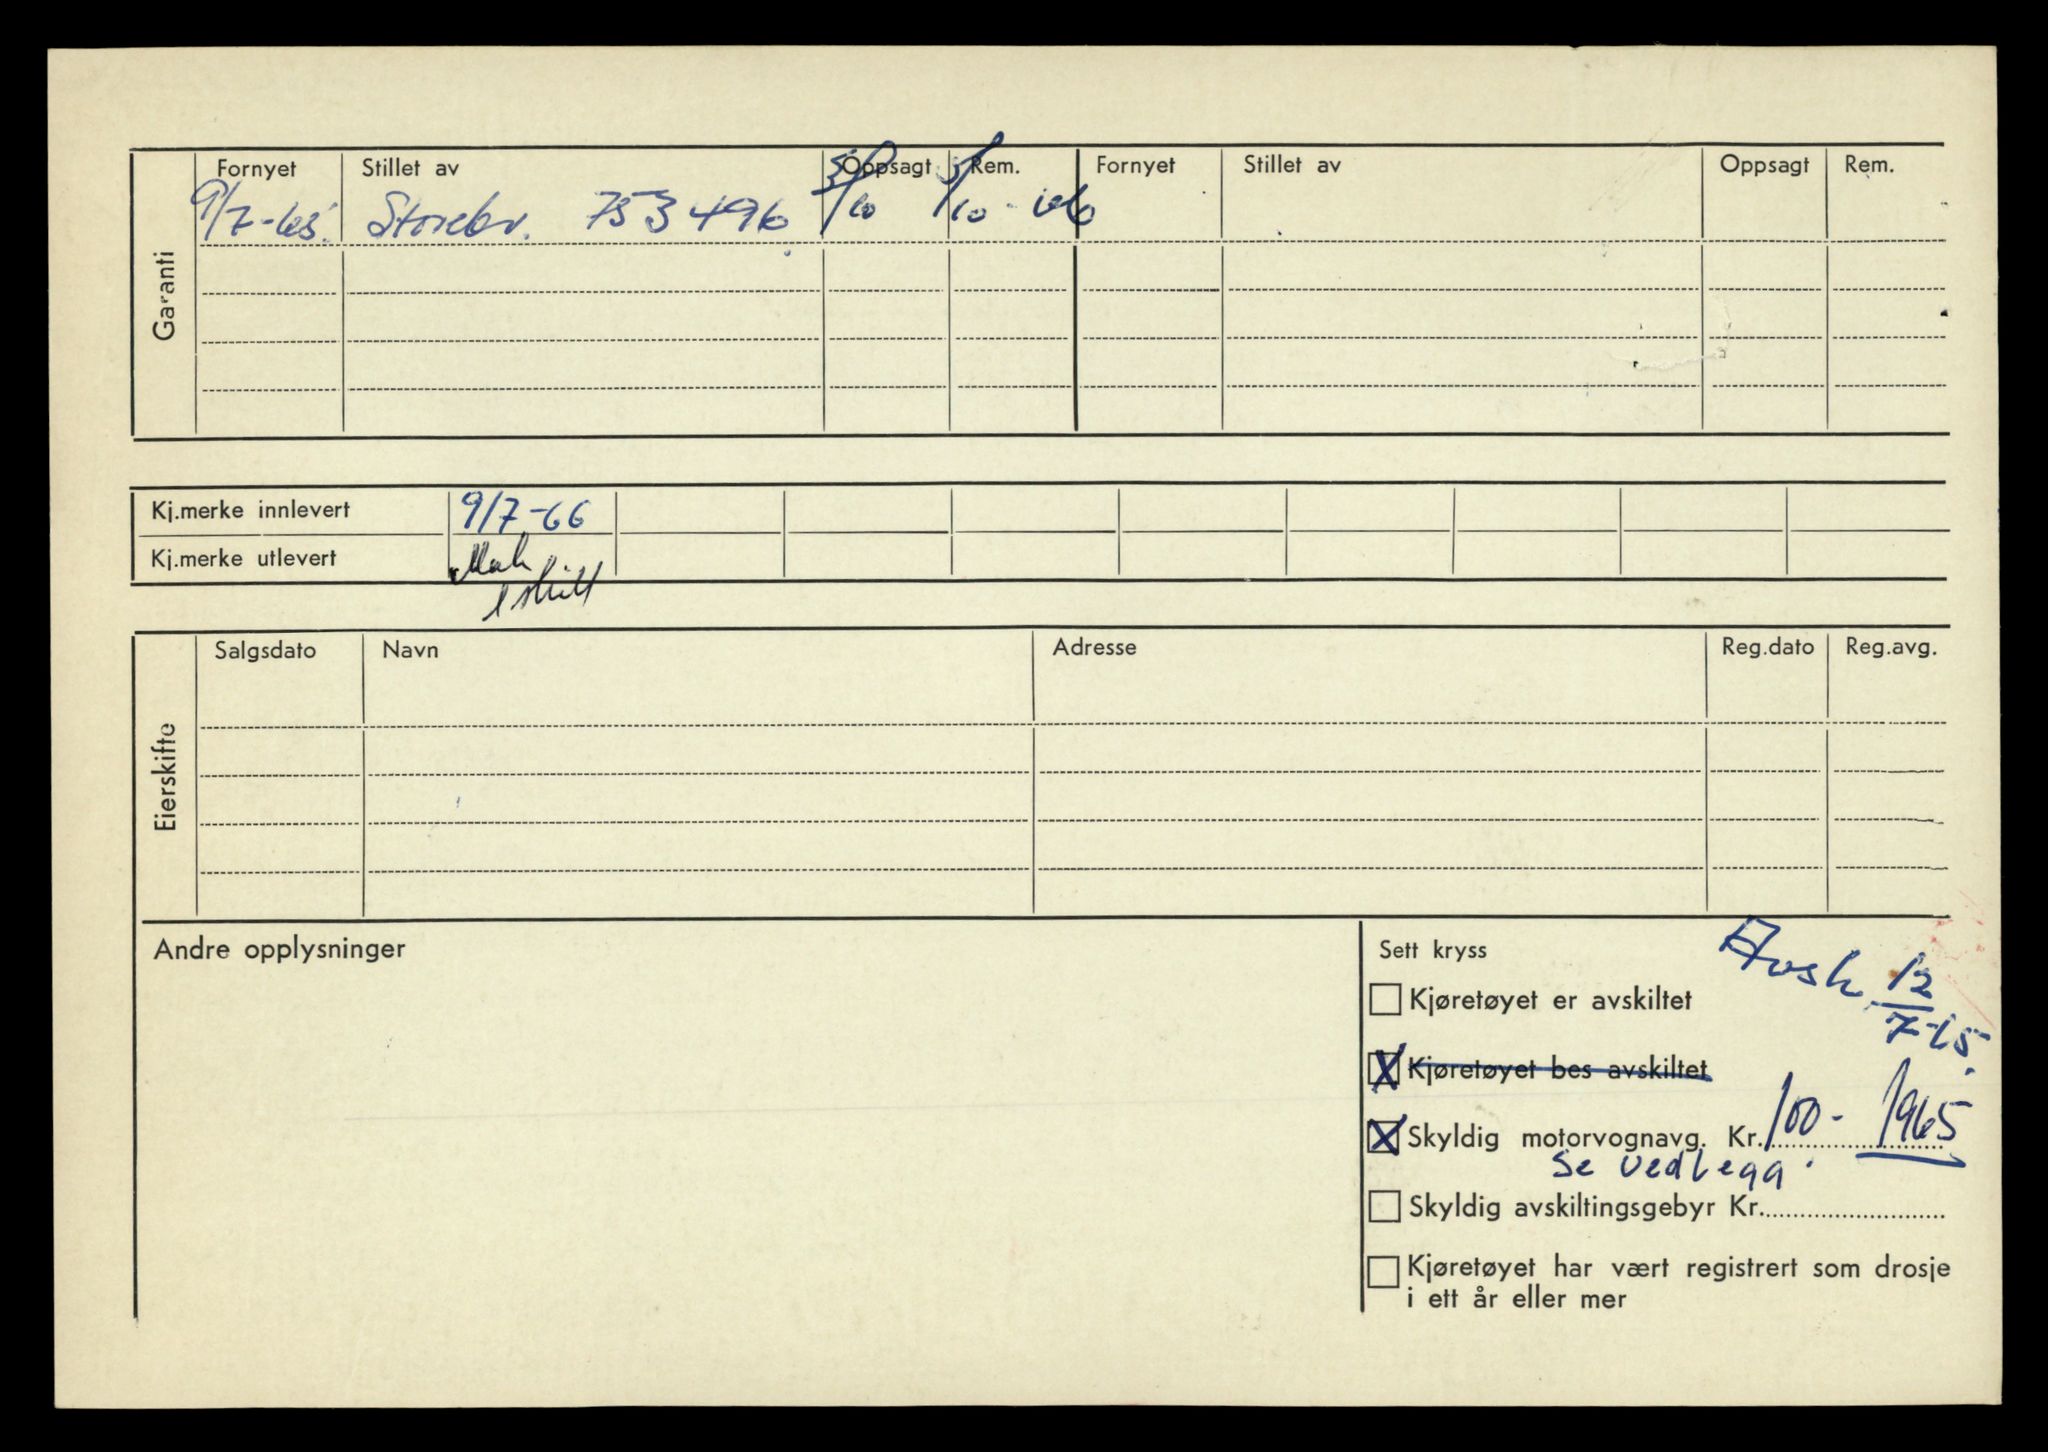 Garanti
Fornyet Stillet av Oppsagt Rem. Fornyet Stillet av Oppsagt Rem.
9/7-65. Storebr. 753496 5/10 5/10-66
Kj.merke innlevert 9/7-66
Kj.merke utlevert
1 skilt
Eierskifte
Salgsdato Navn Adresse Reg.dato Reg.avg.
Andre opplysninger
Sett kryss
Avsk. 12/7-65.
Kjøretøyet er avskiltet
X Kjøretøyet bes avskiltet
X Skyldig motorvognavg. Kr. 100- 1965
se vedlegg.
Skyldig avskiltingsgebyr Kr.
Kjøretøyet har vært registrert som drosje
i ett år eller mer